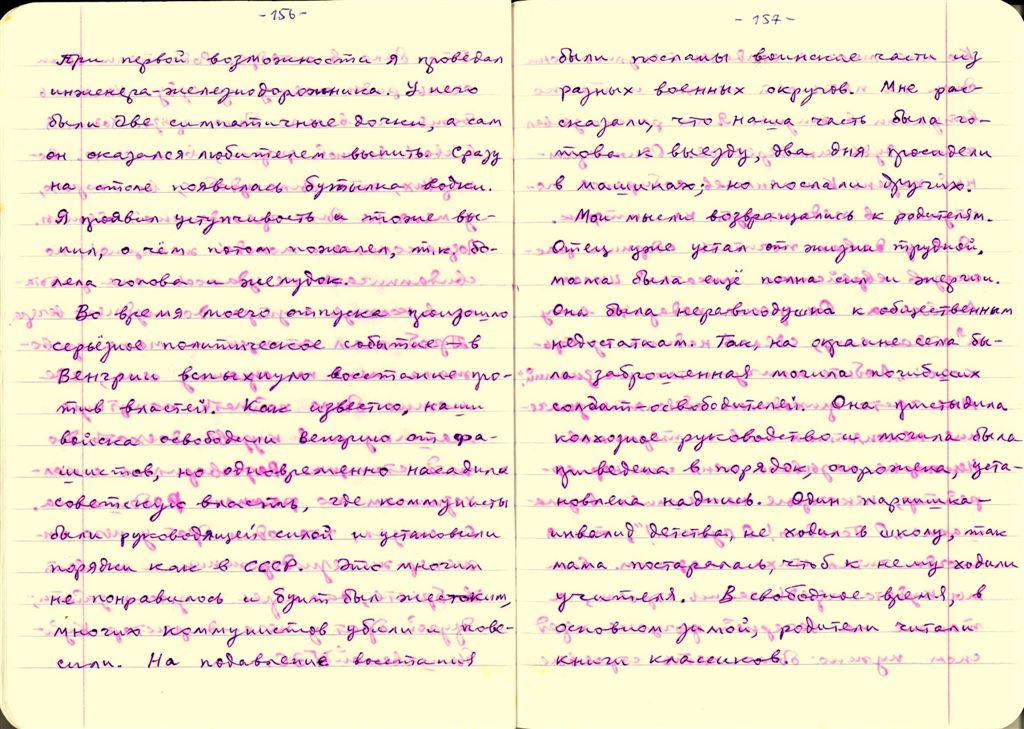 -156-
При первой возможности я проведал
инженера-железнодорожника. У него
были две симпатичные дочки, а сам
он оказался любителем выпить. Сразу
на столе появилась бутылка водки.
Я проявил уступчивость и тоже вы-
пил, о чём потом пожалел, т.к. бо-
лела голова и желудок.
Во время моего отпуска произошло
серьёзное политическое событие – в
Венгрии вспыхнуло восстание про-
тив властей. Как известно, наши
войска освободили Венгрию от фа-
шистов, но одновременно насадили
советскую власть, где коммунисты
были руководящей силой и установили
порядки как в СССР. Это многим
не понравилось и бунт был жестоким,
многих коммунистов убили и пове-
сили. На подавление восстания
-157-
были посланы воинские части из
разных военных округов. Мне рас-
сказали, что наша часть была го-
това к выезду, два дня просидели
в машинах; но послали других.
Мои мысли возвращались к родителям.
Отец уже устал от жизни трудной,
мама была ещё полна сил и энергии.
Она была неравнодушна к общественным
недостаткам. Так, на окраине села бы-
ла заброшенная могила погибших
солдат-освободителей. Она пристыдила
колхозное руководство и могила была
приведена в порядок, огорожена, уста-
новлена надпись. Один парнишка-
инвалид детства, не ходил в школу, так
мама постаралась, чтоб к нему ходили
учителя. В свободное время, в
основном зимой, родители читали
книги классиков.